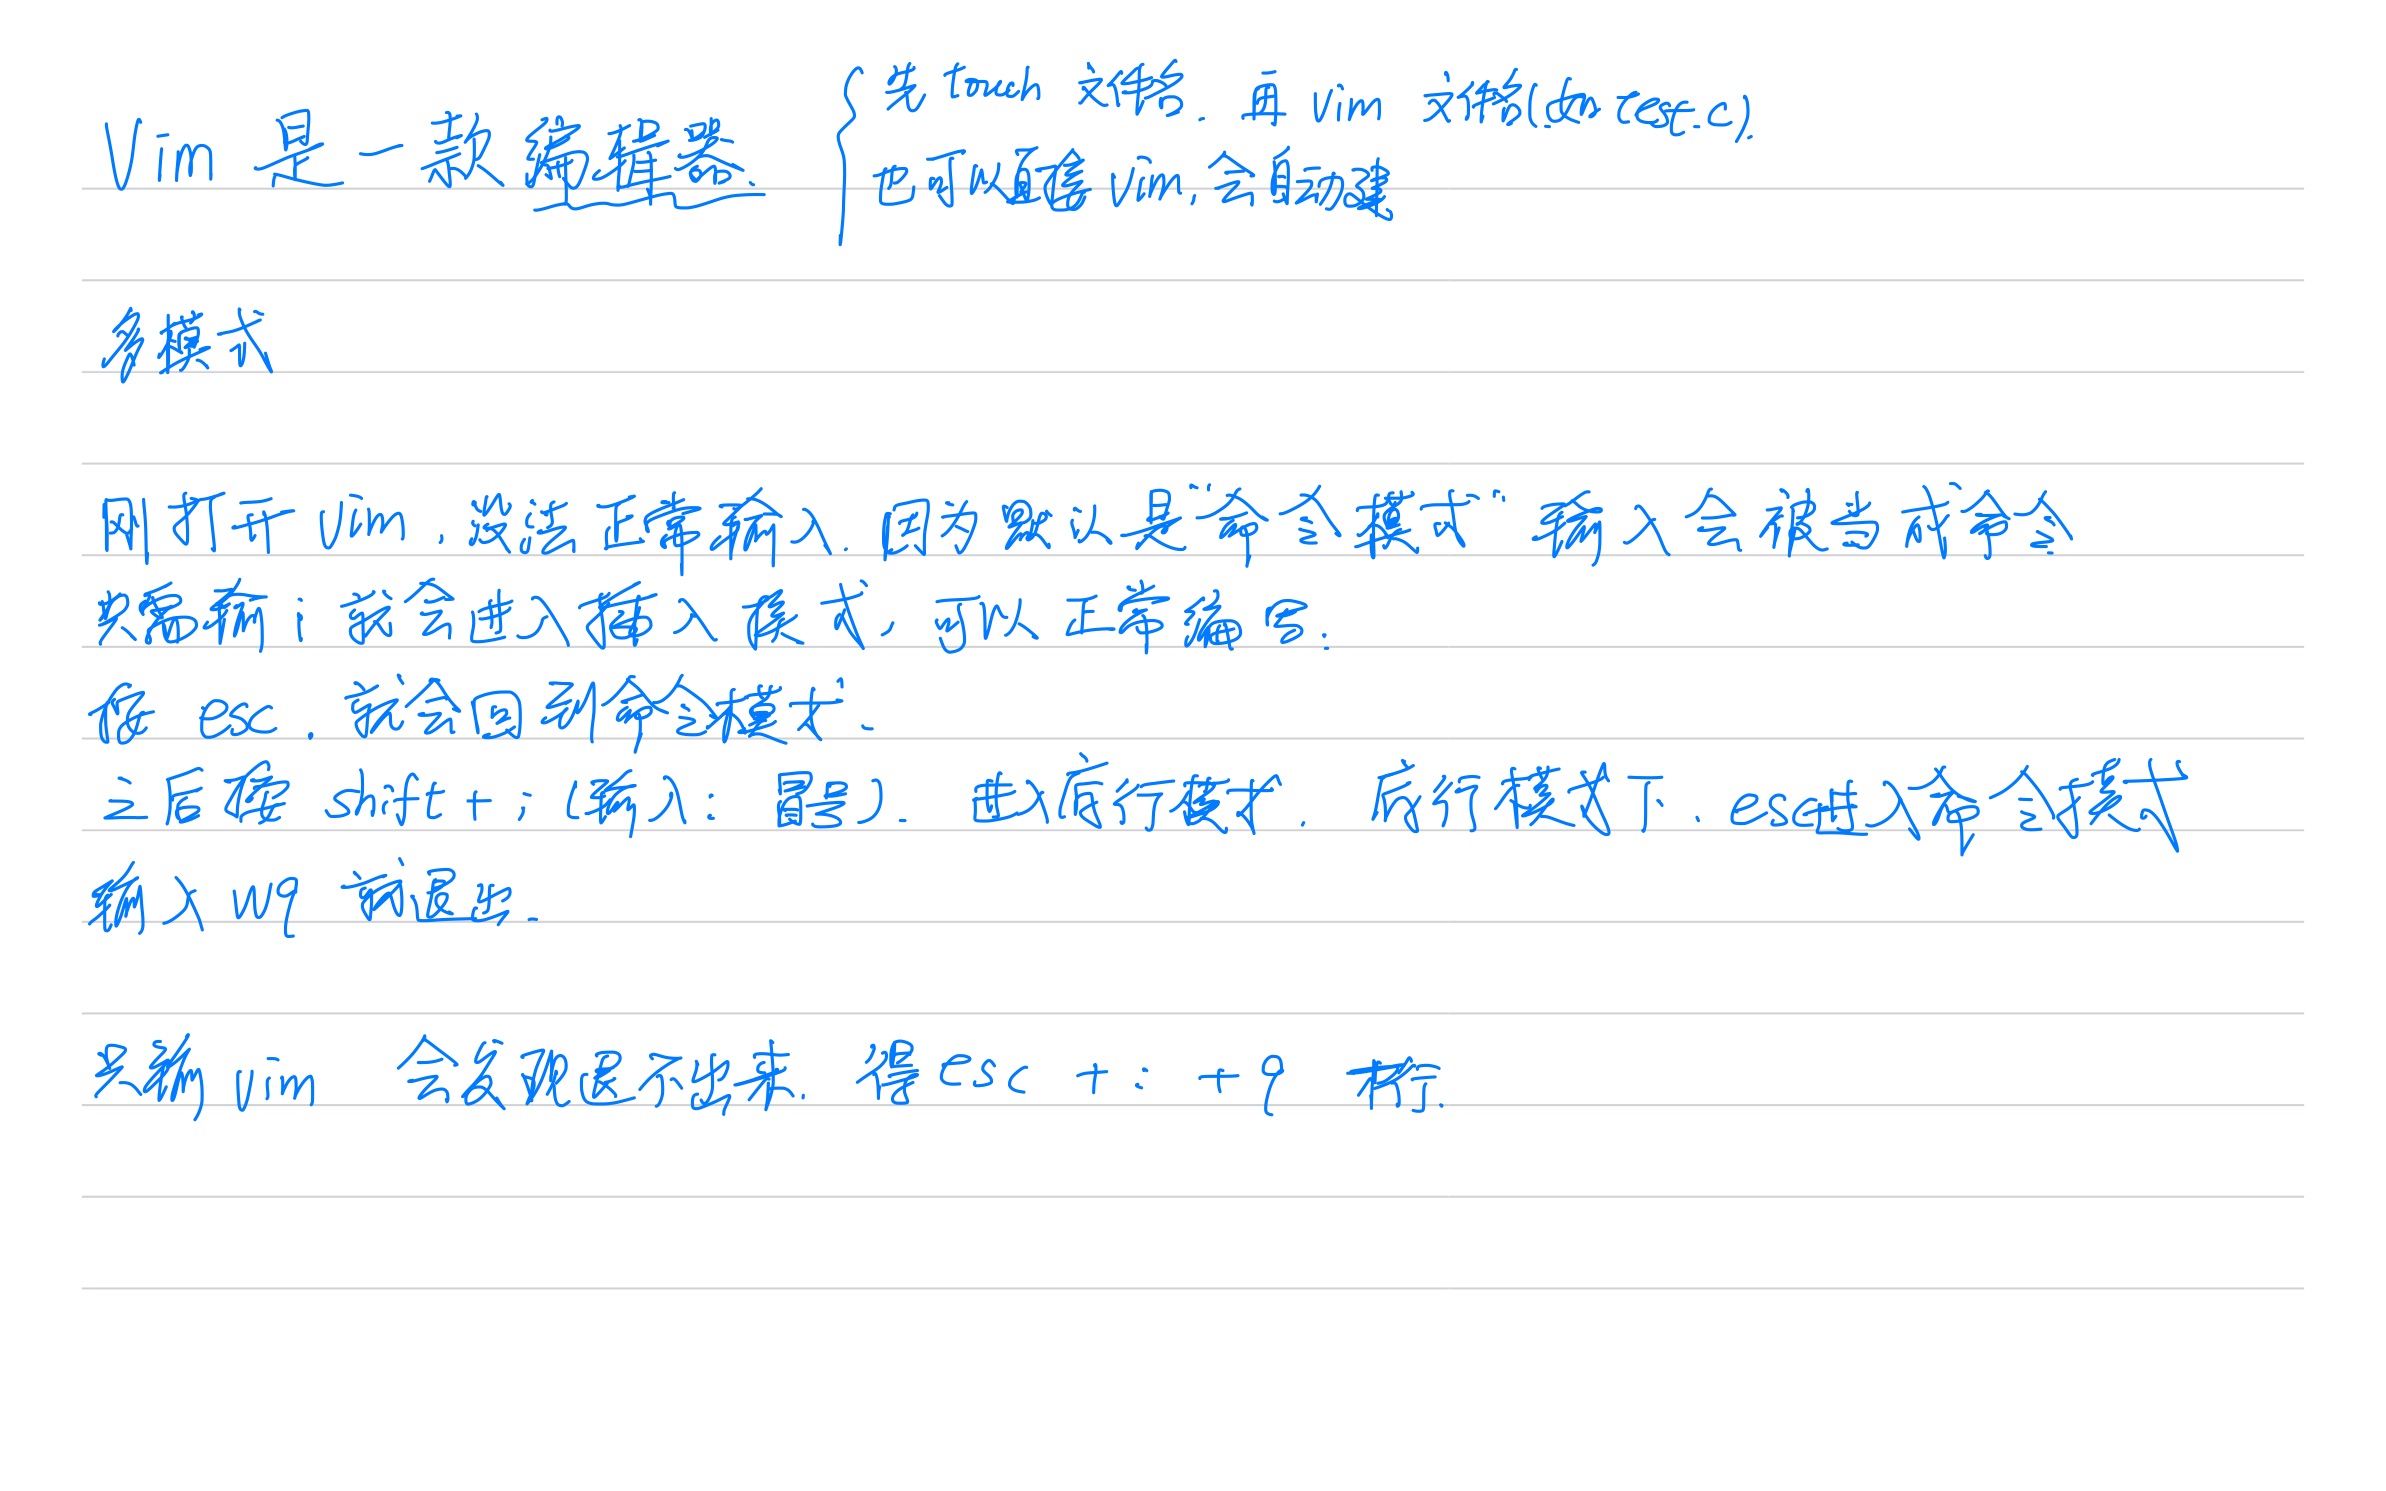 Vim 是一款编辑器.
先 touch 文件名. 再 vim 文件名(如 test.c).
也可以直接 vim, 会自动建
多模式
刚打开 vim, 没法正常输入. 因为默认是"命令模式" 输入会被当前命令
只需输 i 就会进入插入模式, 可以正常编写.
按 esc, 就会回到命令模式.
之后按 shift + ; (输入: 冒号). 进入底行模式. 底行模式下. esc进入命令模式
输入 wq 就退出.
只输 vim 会发现退不出来. 得 esc + : + q 才行.